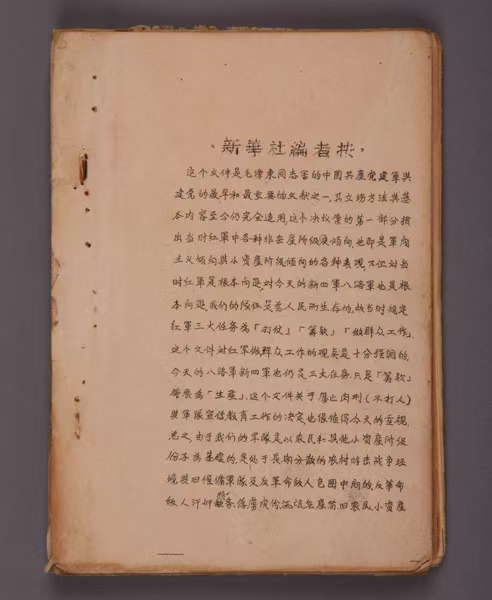 新華社編者按
这个文件是毛澤東同志写的中國共產党建軍與
建党的最早和最重要的文献之一,其立场方法與基
本内容至今仍完全适用,这个决议案的第一部分指
出当时紅軍中各种非無產阶级傾向,也即是軍閥
主义傾向與小資產阶级傾向的各种表現,不但对当
时紅軍是根本问题,对今天的新四軍八路軍也是根
本问题,我们的隊伍是為人民而生存的,故当时規定
紅軍三大任务為「打仗」「筹欵」「做群众工作」,
这个文件对紅軍做群众工作的观点是十分强調的,
今天的八路軍新四軍也仍是三大任务,只是「筹欵」
發展為「生產」,这个文件关于廢止肉刑(不打人)
與軍隊宣伝教育工作的决定,也很值得今天的重視,
总之,由于我们的軍隊是以农民和其他小資產阶级
份子為基礎的,是处于長期分散的农村游击战争环
境與旧僱傭軍隊及反革命敌人包围中
敌人汗奸 四农民小資產